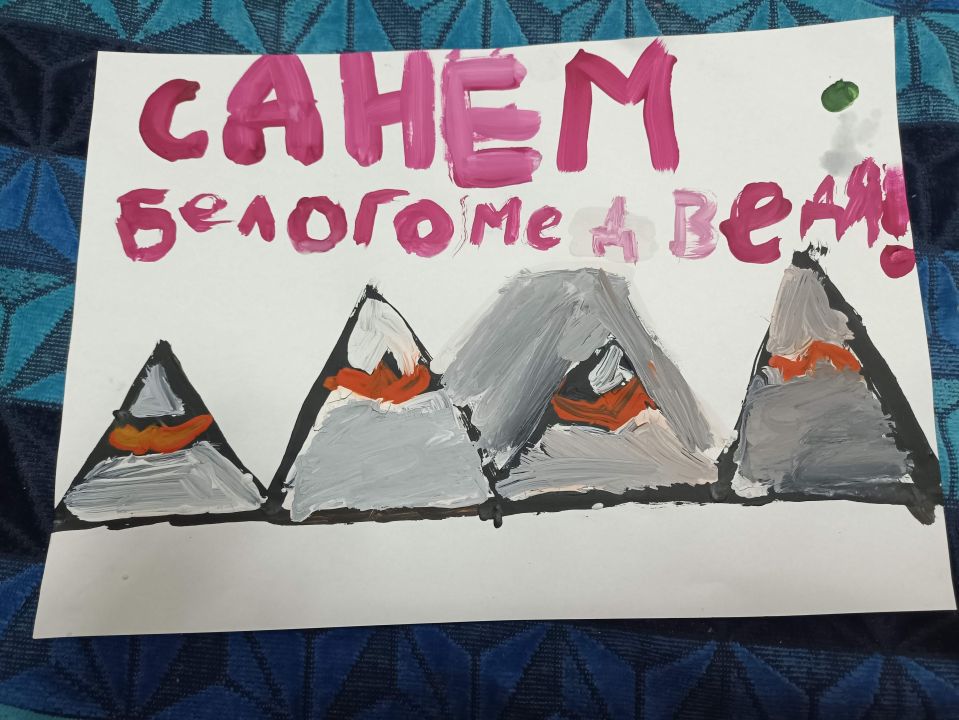 САНЕМ
БелогомедВедя!